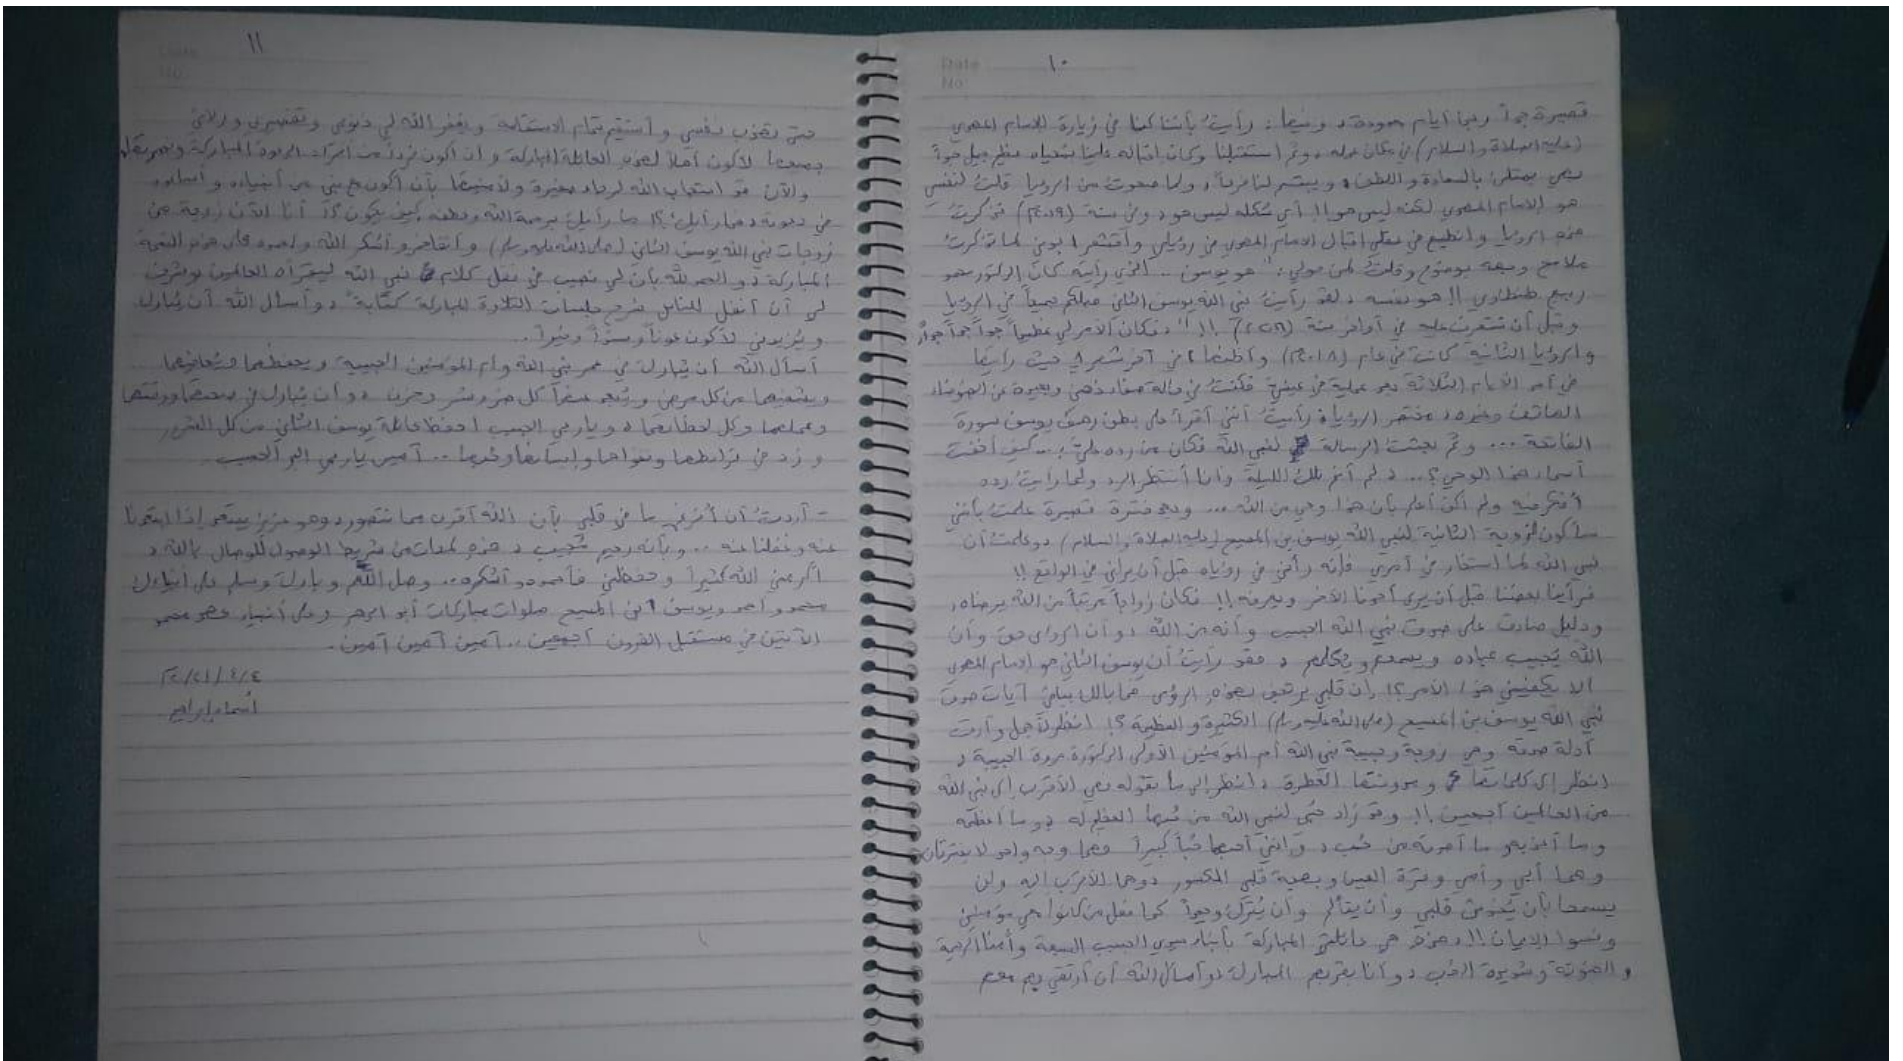 ١٠
قصيرة جداً ربما أيام معدودة، وفيها: رأيتُ بأننا كنا في زيارة للإمام المهدي
(عليه الصلاة والسلام) في مكان عمله، وتم استقبلنا وكان إقباله علينا بمحياه منظر جميل جداً
يمتلئ بالسعادة واللطف، ويبتسم لنا فرحاً، ولما صحوت من الرؤيا قلتُ لنفسي
هو الإمام المهدي لكنه ليس هو!! أي شكله ليس هو، وفي سنة (٢٠١٩م) تذكرتُ
هذه الرؤيا وانطبع في عقلي إقبال الإمام المهدي في رؤيتي واقشعر بدني لما تذكرتُ
ملامح وجهه بوضوح وقلتُ لمن حولي: "هو يوسف.. الذي رأيته كان الدكتور محمد
ربيع طنطاوي!! هو نفسه، لقد رأيتُ نبي الله يوسف الثاني قبلكم جميعاً في الرؤيا
وقبل أن نتعرف عليه في أواخر سنة !!" فكان الأمر لي عظيماً جداً جداً جداً
والرؤيا الثانية كانت في عام (٢٠١٨م) وأظنها في آخر شهر حيث رأيتها
في أحد الأيام الثلاثة بعد عملية في عيني فكنتُ في حالة صفاء ذهني وبعيدة عن الضوضاء
الهاتف وغيره، مختصر الرؤيا رأيتُ أنني أقرأ على بطن يوسف سورة
الفاتحة... وتم بعثت الرسالة لنبي الله فكان من رده عليّ: ..كيف أخفت
أسماء هذا الوحي؟... لم أنم تلك الليلة وأنا أنتظر الرد ولما رأيتُ رده
ولم أكن أعلم بأن هذا وحي من الله... وبعد فترة قصيرة علمتُ بأنني
سأكون الزوجة الثانية لنبي الله يوسف بن المسيح (عليه الصلاة والسلام)، وعلمت أن
نبي الله لما استخار في أمري فإنه رآني في رؤياه قبل أن يراني في الواقع!!
فرأينا بعضنا قبل أن يرى أحدنا الآخر ويعرفه!! فكان زواجاً مرتباً من الله برضاه،
ودليل صادق على صدق نبي الله الحبيب وأنه من الله، وأن الرؤى حق وأن
الله يُجيب عباده ويسمعهم ويكلمهم، فقد رأيتُ أن يوسف الثاني هو الإمام المهدي
ألا يكفيني هذا الأمر؟! إن قلبي بهذه الرؤى فما بالك بباقي آيات صدق
نبي الله يوسف بن المسيح (صلى الله عليه وسلم) الكثيرة والعظيمة؟! انظر لأجمل وأرق
أدلة صدقه وهي زوجة وحبيبة نبي الله أم المؤمنين الأولى الدكتورة مروة الحبيبة،
انظر إلى كلماتها ومدونتها العطرة، انظر إلى ما تقوله فهي الأقرب إلى نبي الله
من العالمين أجمعين!! وقد زاد حبي لنبي الله من حُبها العظيم له، وما أعظمه
وما أعذبه وما أصدقه من حُب، وإنني أحبهما حُباً كبيراً فهما وجه واحد لا يفترقان
وهما أبي وأمي وقرة العين وبهجة قلبي المكسور، وهما الأقرب إليه ولن
يسمحا بأن يُخدش قلبي وأن يتألم وأن يُترك وحيداً كما فعل من كانوا هم مؤمنين
ونسوا الإيمان!! هذه هي عائلتي المباركة بأبناء سيدي الحبيب السبعة وأمنا الرحيمة
والحنونة وشديدة الحُب، وأنا بقربهم المبارك، وأسأل الله أن أرتقي بهم معهم
١١
حتى تهذب نفسي وأستقيم تمام الاستقامة ويغفر الله لي ذنوبي وتقصيري وزلاتي
جميعها لأكون أهلاً لهذه العائلة المباركة وأن أكون فرداً من أفراد الدوحة المباركة
والآن قد استجاب الله لدعاء صغيرة ولأمنيتها بأن أكون مع نبي من أنبيائه وأساعده
في دعوته، فما رأيك؟! ما رأيك برحمة الله ولطفه كيف يكون؟! أنا الآن زوجة من
زوجات نبي الله يوسف الثاني (صلى الله عليه وسلم) وأتفاخر وأشكر الله وأحمده على هذه النعمة
المباركة، والحمد لله بأن لي نصيب في نقل كلام نبي الله ليقرأه العالمين
لي أن أنقل للناس شرح جلسات التلاوة المباركة كتابةً، وأسأل الله أن يُبارك
ويُزيدني لأكون عوناً وسنداً وخيراً..
أسأل الله أن يُبارك في عمر نبي الله وأم المؤمنين الحبيبة ويحفظهما ويُعافيهما
ويشفيهما من كل مرض ويُبعد عنهما كل ضر وشر وحزن، وأن يُبارك في صحتهما ووقتهما
وعملهما وكل لحظاتهما، ويا ربي الحبيب احفظ عائلة يوسف الثاني من كل الشرور
وزد في ترابطها وتقواها وإيمانها وفرحها.. آمين يا ربي البر الحبيب.
- أردتُ أن أُخرج ما في قلبي بأن الله أقرب مما نتصور، وهو عزيز يبتعد إذا ابتعدنا
عنه وغفلنا عنه.. وبأنه رحيم مُجيب، هذه لمحات من شريط الوصول للوصال بالله،
أكرمني الله كثيراً وحفظني فأحمده وأشكره.. وصل اللهم وبارك وسلم على أنبيائك
محمد وأحمد ويوسف ابن المسيح صلوات مباركات أبد الدهر وعلى أنبياء عهد محمد
الآتين في مستقبل القرون أجمعين.. آمين آمين آمين.
أسماء إبراهيم